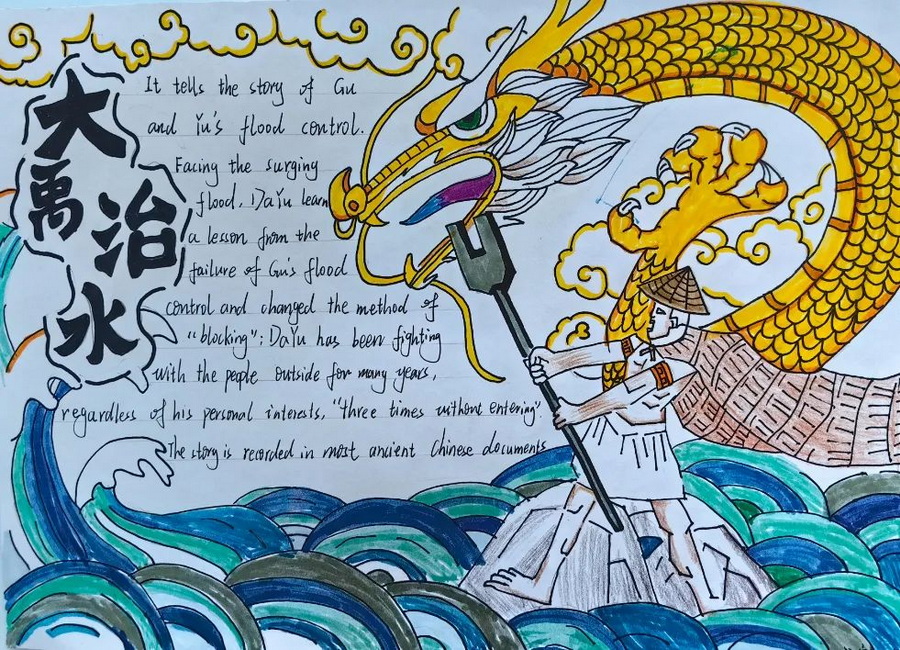 大禹治水
It tells the story of Gu
and Yu's flood control.
Facing the surging
flood, DaYu learn
a lesson from the
failure of Gu's flood
control and changed the method of
"blocking"; DaYu has been fighting
with the people outside for many years,
regardless of his personal interests, "three times without entering".
The story is recorded in most ancient Chinese documents